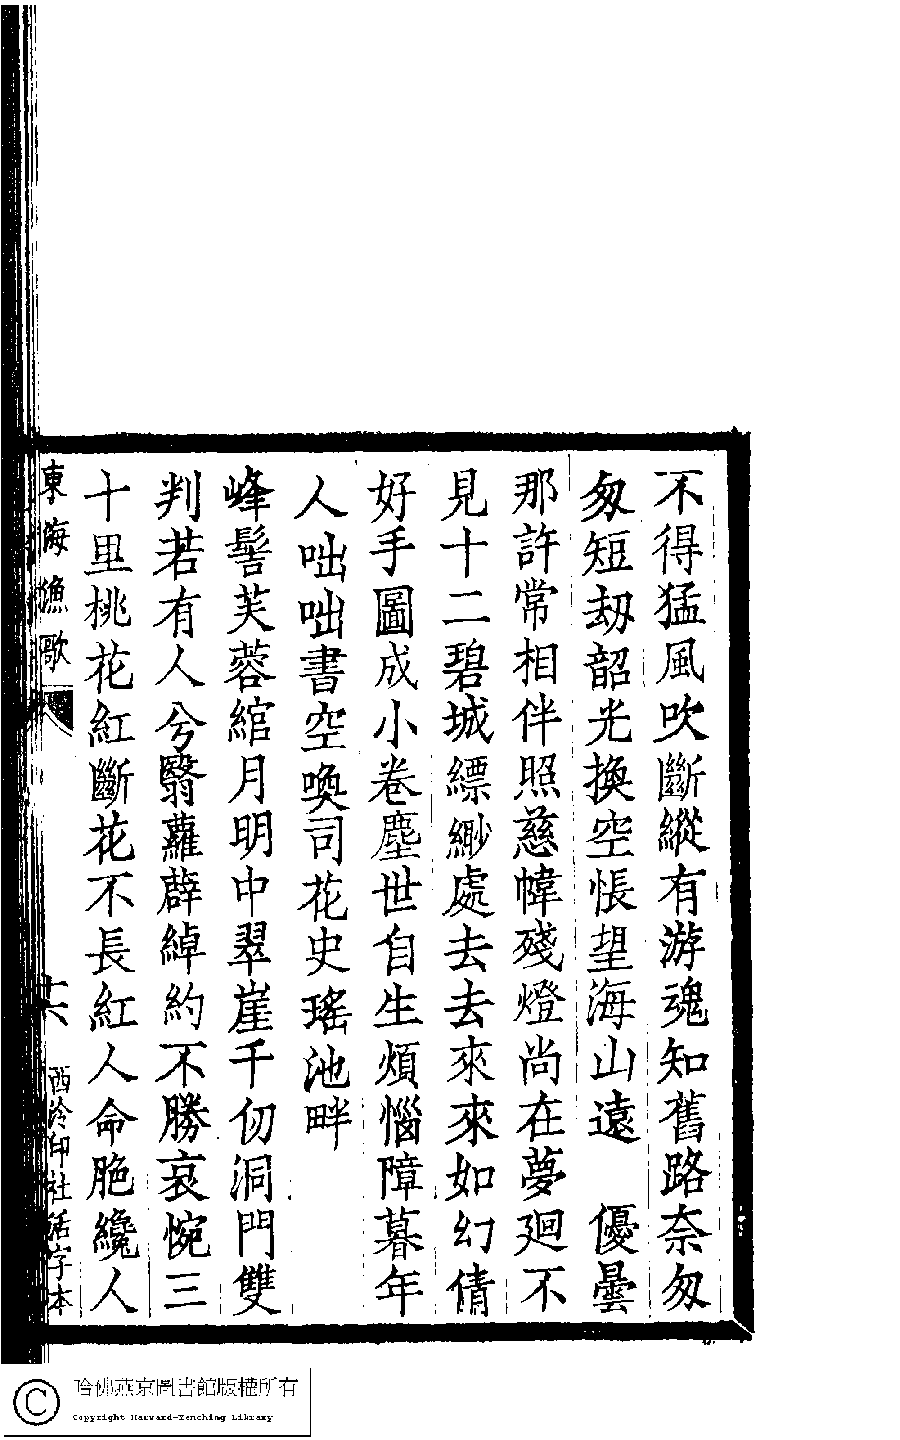 不得猛風吹斷縱有游魂知舊路奈匆
匆短劫韶光換空悵望海山遠　優曇
那許常相伴照慈幃殘燈尚在夢廻不
見十二碧城縹緲處去去來來如幻倩
好手圖成小卷塵世自生煩惱障暮年
人咄咄書空喚司花史瑤池畔
峰髻芙蓉綰月明中翠崖千仞洞門雙
判若有人兮翳蘿薜綽約不勝哀惋三
十里桃花紅斷花不長紅人命脆纔人
東海漁歌
十六
西泠印社活字本
哈佛燕京圖書館版權所有
Copyright Harvard-Yenching Library